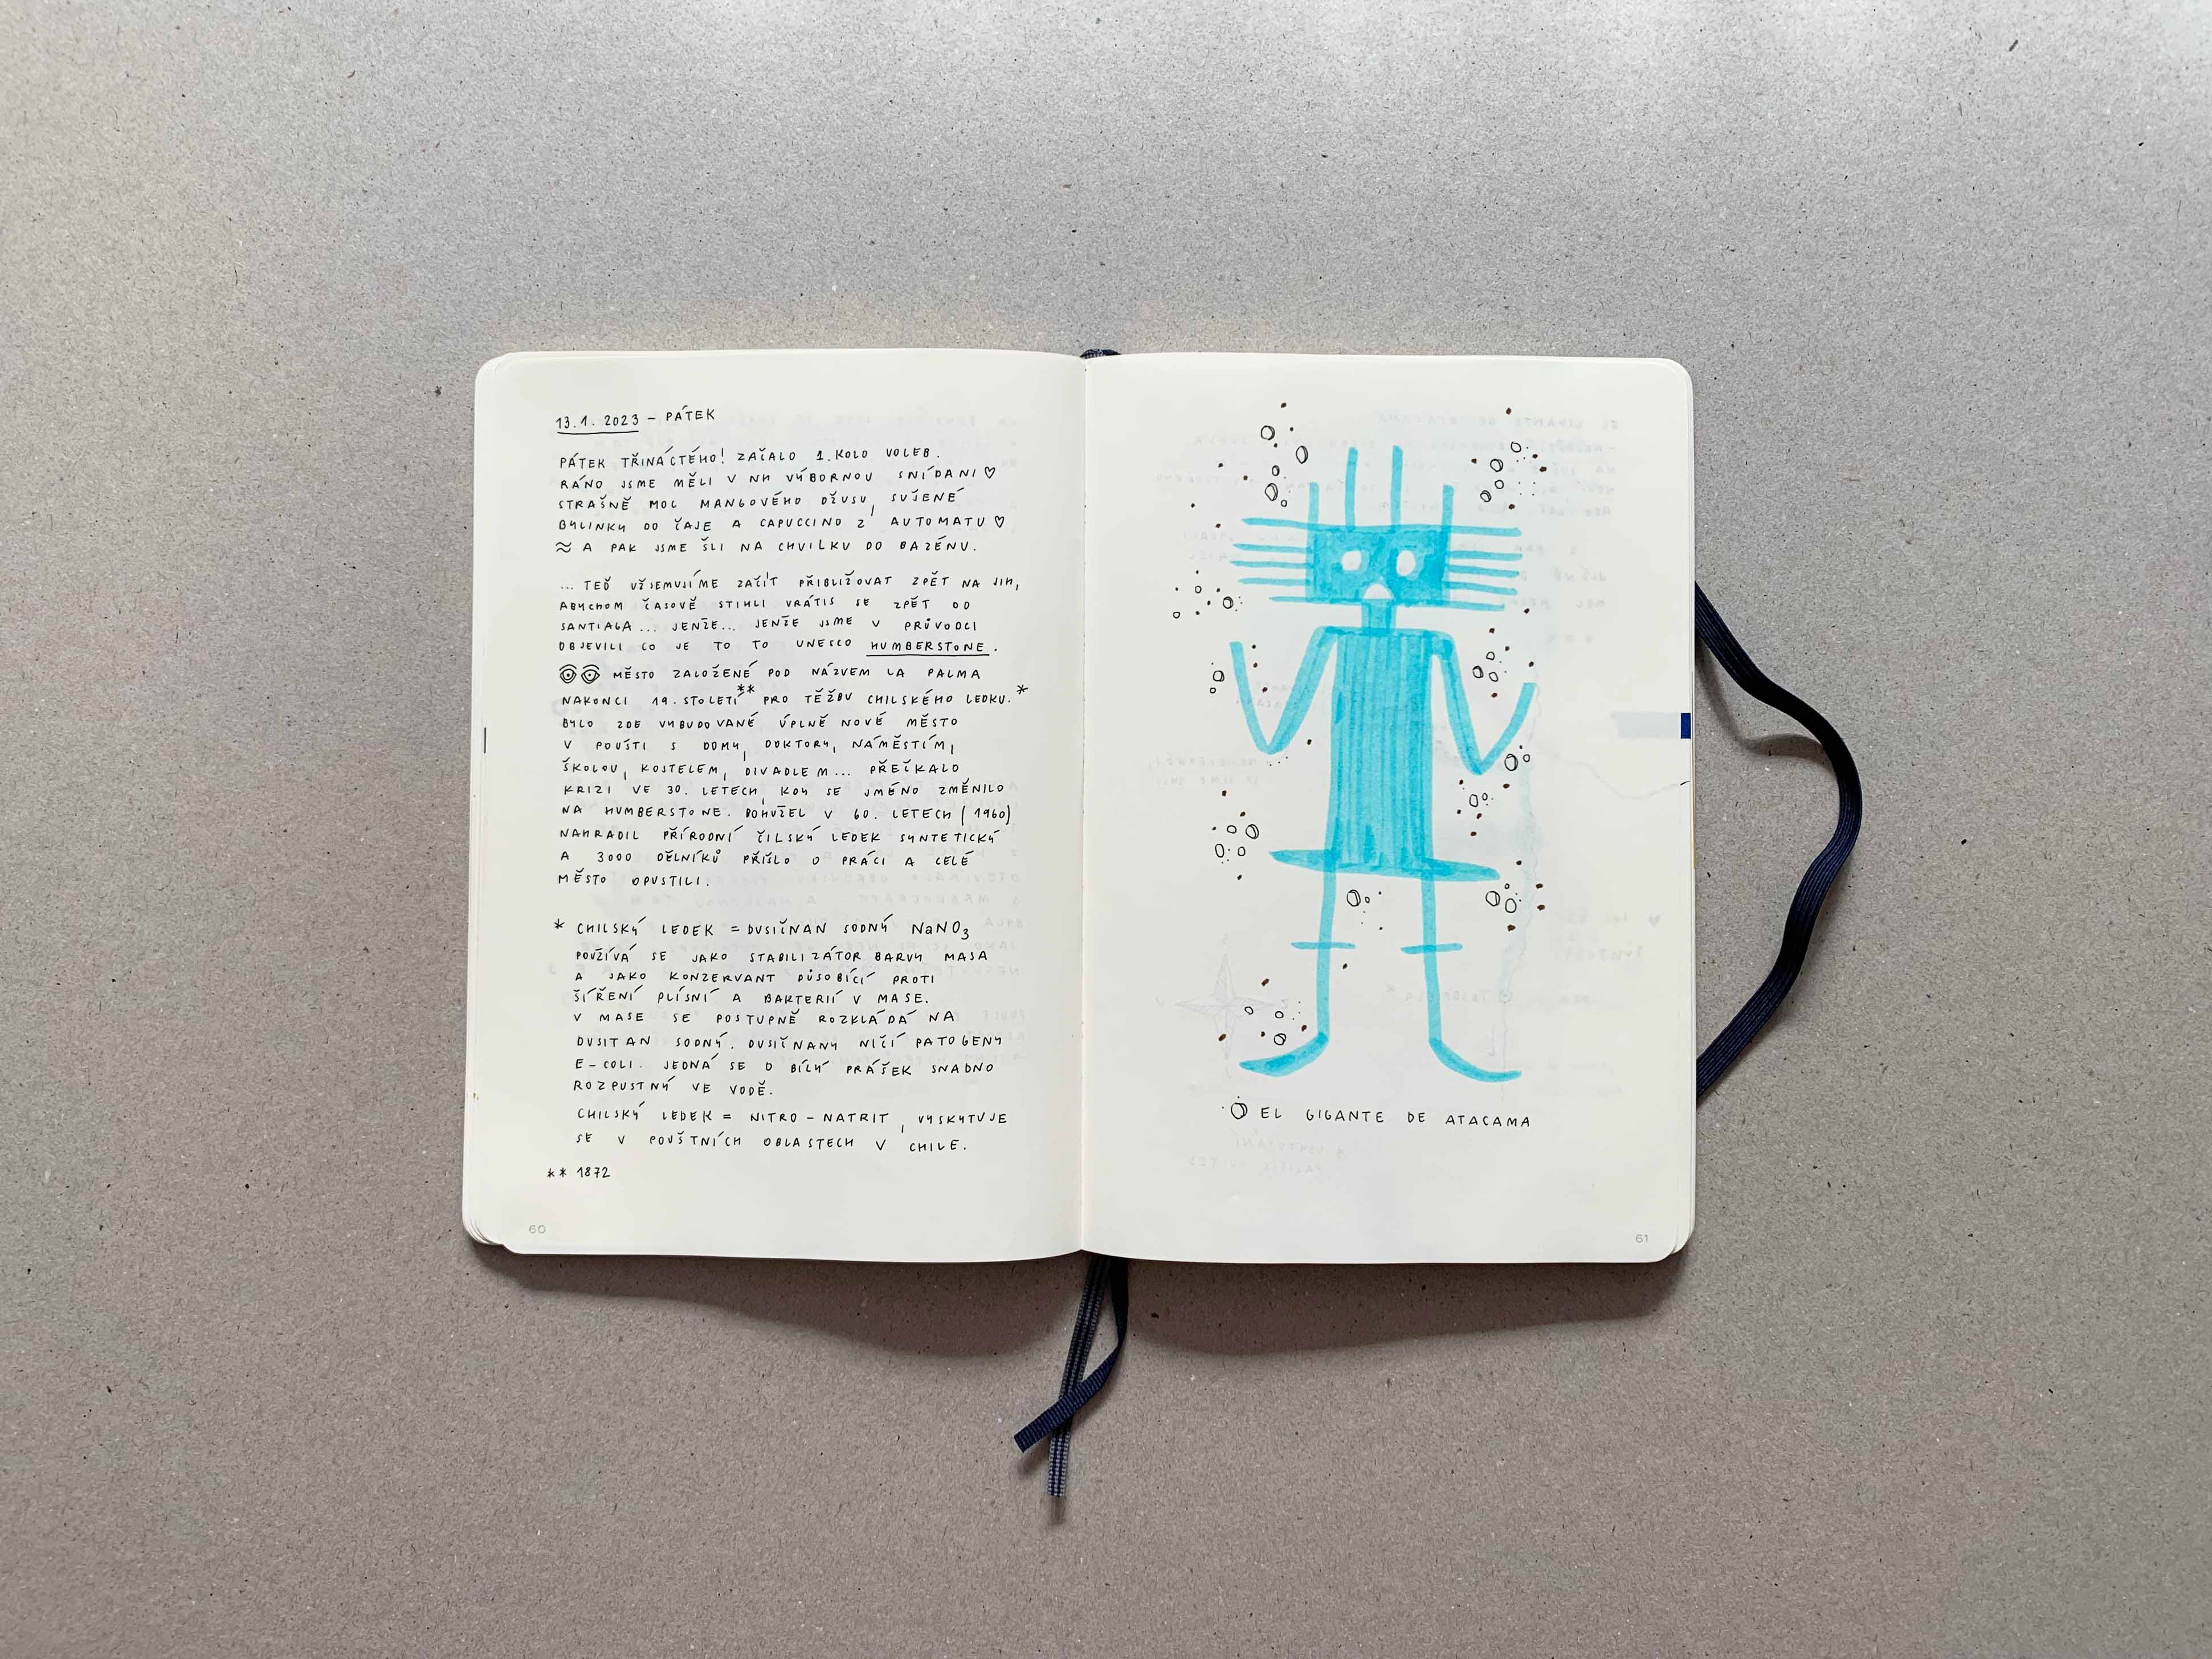 13.1.2023 – PÁTEK
PÁTEK TŘINÁCTÉHO! ZAČALO 1. KOLO VOLEB.
RÁNO JSME MĚLI V NH VÝBORNOU SNÍDANI ♡
STRAŠNĚ MOC MANGOVÉHO DŽUSU, SUŠENÉ
BYLINKY DO ČAJE A CAPUCCINO Z AUTOMATU ♡
≈ A PAK JSME ŠLI NA CHVILKU DO BAZÉNU.
... TEĎ UŽ JEMUJÍME ZAČÍT PŘIBLIŽOVAT ZPĚT NA JIH,
ABYCHOM ČASOVĚ STIHLI VRÁTIS SE ZPĚT DO
SANTIAGA... JENŽE... JENŽE JSME V PRŮVODCI
OBJEVILI CO JE TO TO UNESCO HUMBERSTONE.
MĚSTO ZALOŽENÉ POD NÁZVEM LA PALMA
NAKONCI 19. STOLETÍ** PRO TĚŽBU CHILSKÉHO LEDKU.*
BYLO ZDE VYBUDOVANÉ ÚPLNĚ NOVÉ MĚSTO
V POUŠTI S DOMY, DOKTORY, NÁMĚSTÍM,
ŠKOLOU, KOSTELEM, DIVADLEM... PŘEČKALO
KRIZI VE 30. LETECH, KDY SE JMÉNO ZMĚNILO
NA HUMBERSTONE. BOHUŽEL V 60. LETECH (1960)
NAHRADIL PŘÍRODNÍ ČILSKÝ LEDEK SYNTETICKÝ
A 3000 DĚLNÍKŮ PŘIŠLO O PRÁCI A CELÉ
MĚSTO OPUSTILI.
* CHILSKÝ LEDEK = DUSIČNAN SODNÝ NaNO3
POUŽÍVÁ SE JAKO STABILIZÁTOR BARVY MASA
A JAKO KONZERVANT PŮSOBÍCÍ PROTI
ŠÍŘENÍ PLÍSNÍ A BAKTERIÍ V MASE.
V MASE SE POSTUPNĚ ROZKLÁDÁ NA
DUSITAN SODNÝ. DUSIČNANY NIČÍ PATOGENY
E-COLI. JEDNÁ SE O BÍLÝ PRÁŠEK SNADNO
ROZPUSTNÝ VE VODĚ.
CHILSKÝ LEDEK = NITRO-NATRIT, VYSKYTUJE
SE V POUŠTNÍCH OBLASTECH V CHILE.
** 1872
60
EL GIGANTE DE ATACAMA
61